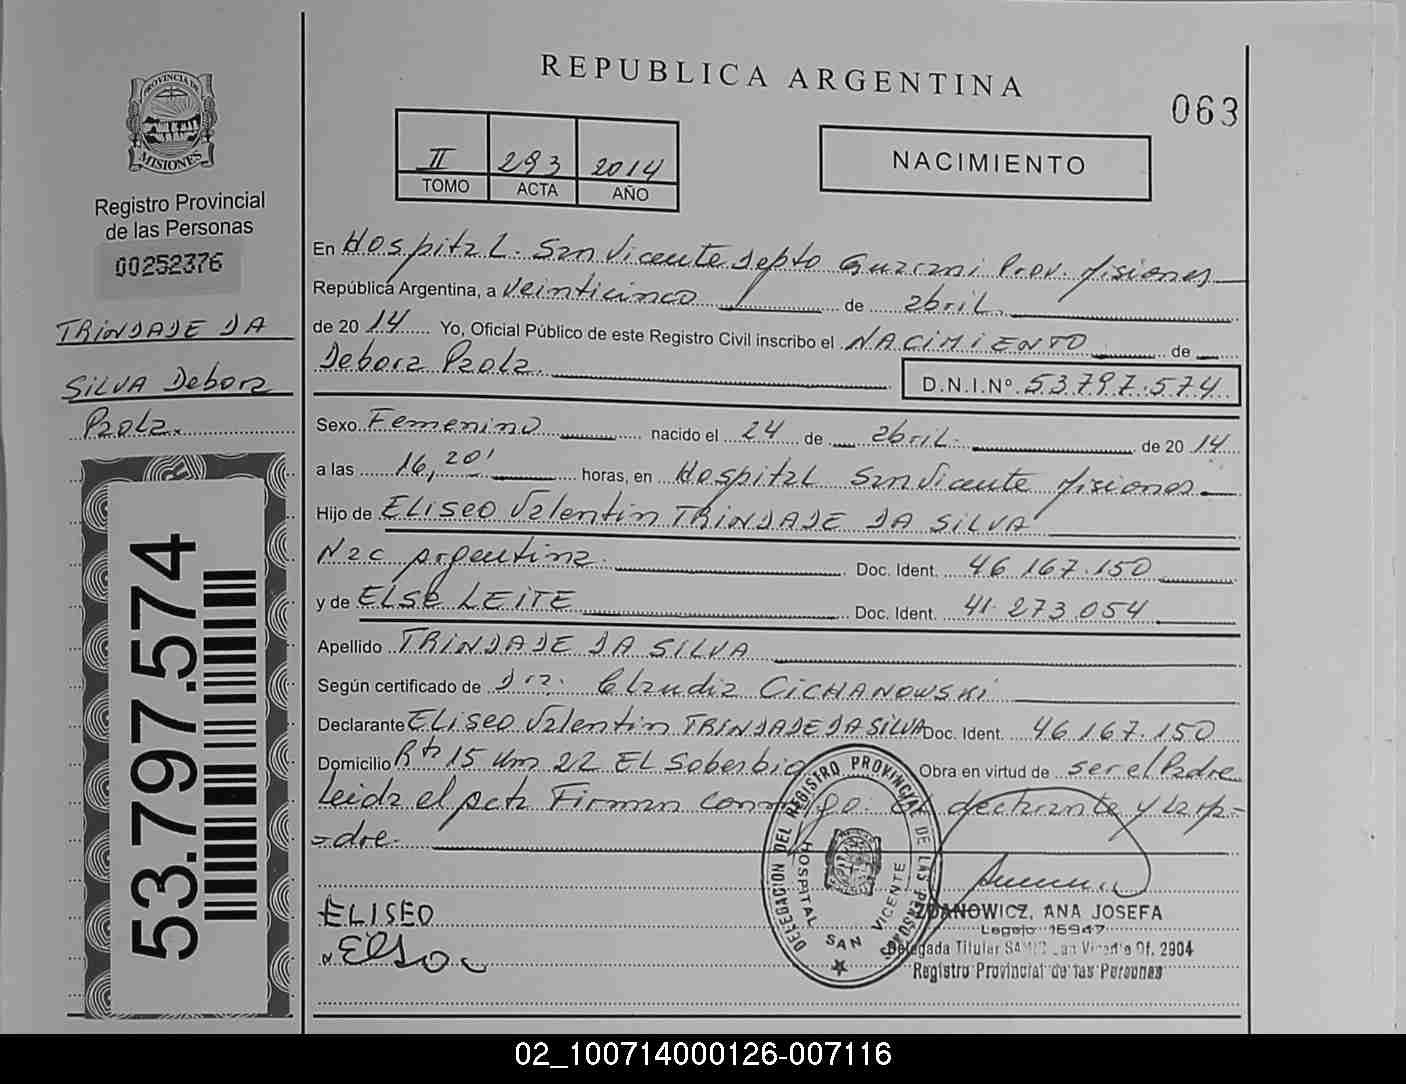 REPUBLICA ARGENTINA
063
II 293 2014
TOMO ACTA AÑO
NACIMIENTO
PROVINCIA DE MISIONES
Registro Provincial
de las Personas
00252376
TRINDADE DA
SILVA Debora
Paola.
53.797.574
En Hospital. San Vicente Depto Guarani Prov. Misiones
República Argentina, a Veinticinco de abril.
de 20 14 Yo, Oficial Público de este Registro Civil inscribo el NACIMIENTO de
Debora Paola. D.N.I.Nº 53.797.574
Sexo Femenino nacido el 24 de abril. de 20 14
a las 16,20' horas, en Hospital San Vicente Misiones
Hijo de ELISEO Valentin TRINDADE DA SILVA
Nac Argentina. Doc. Ident. 46.167.150
y de ELSA LEITE Doc. Ident. 41.273.054
Apellido TRINDADE DA SILVA
Según certificado de Dra. Claudia CICHANOWSKI
Declarante ELISEO Valentin TRINDADE DA SILVA Doc. Ident. 46.167.150
Domicilio Rta 15 Km 22 EL Soberbio Obra en virtud de ser el Padre
Leida el acta Firman conmigo el declarante y la ma=
=dre.
ELISEO
ELSA
DELEGACION DEL REGISTRO PROVINCIAL DE LAS PERSONAS
HOSPITAL SAN VICENTE
ZDANOWICZ, ANA JOSEFA
Legajo 15947
Delegada Titular San Vicente Of. 2904
Registro Provincial de las Personas
02_100714000126-007116